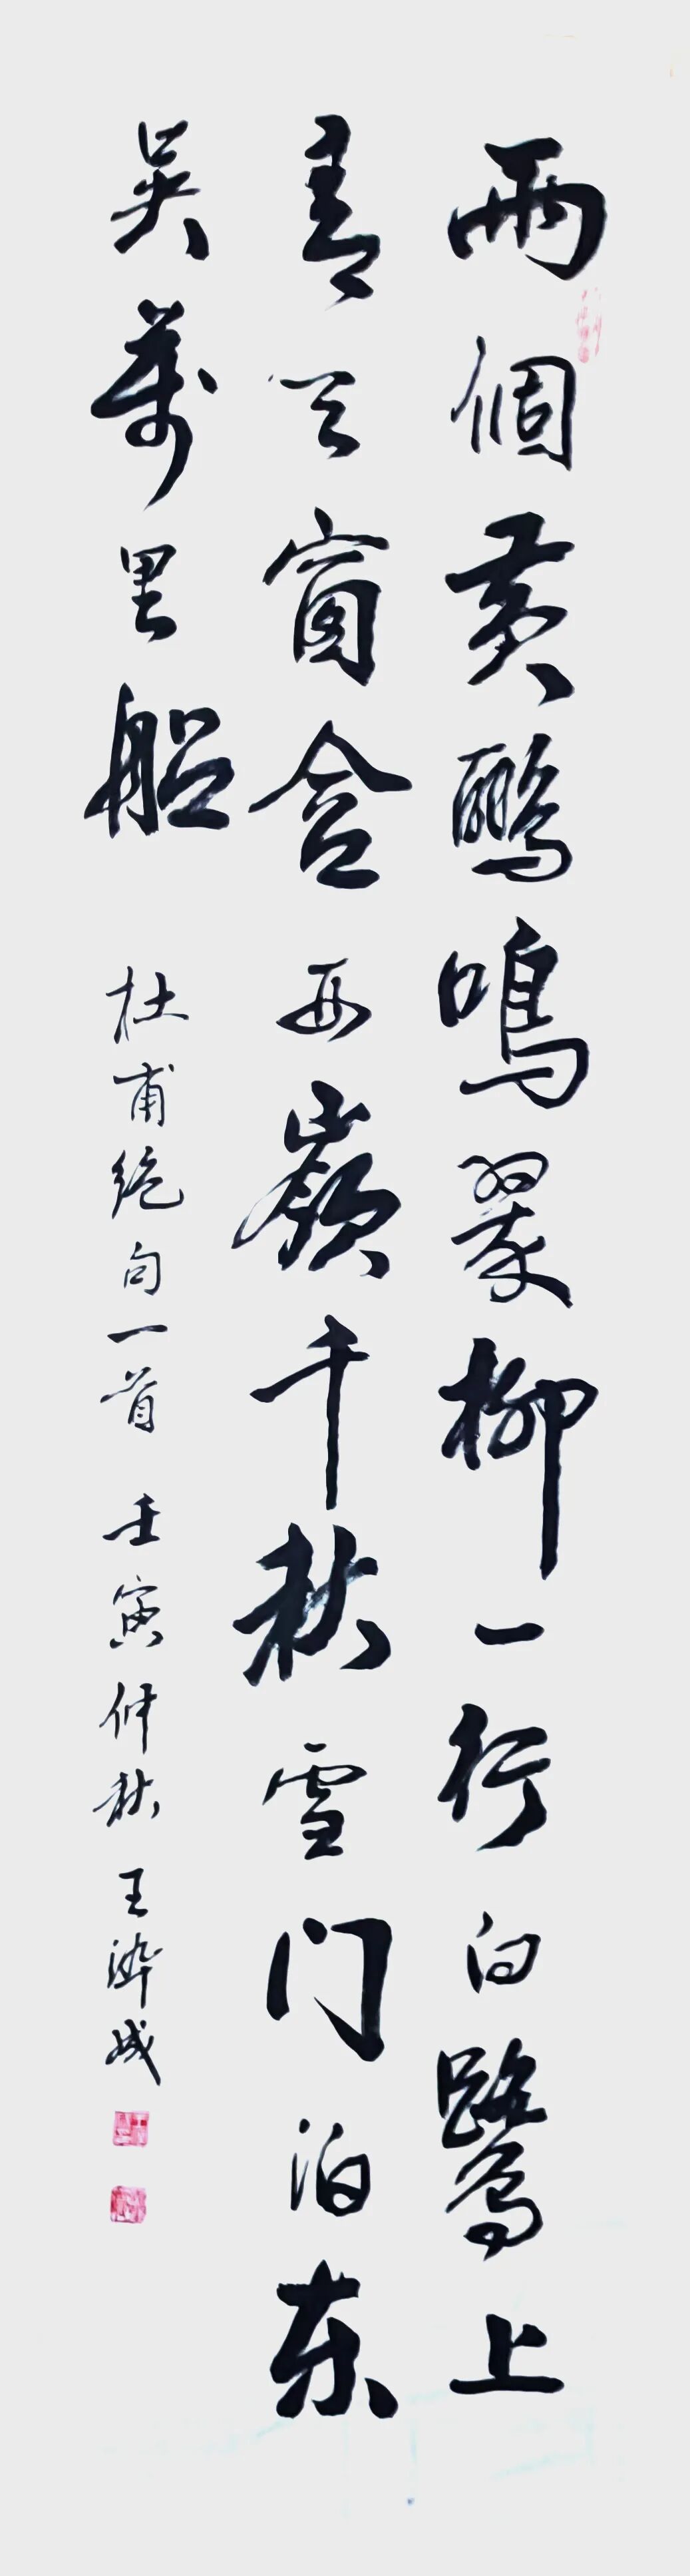 兩個黃鸝鳴翠柳一行白鷺上
青天窗含西嶺千秋雪门泊东
吴萬里船
杜甫绝句一首 壬寅仲秋 王 成